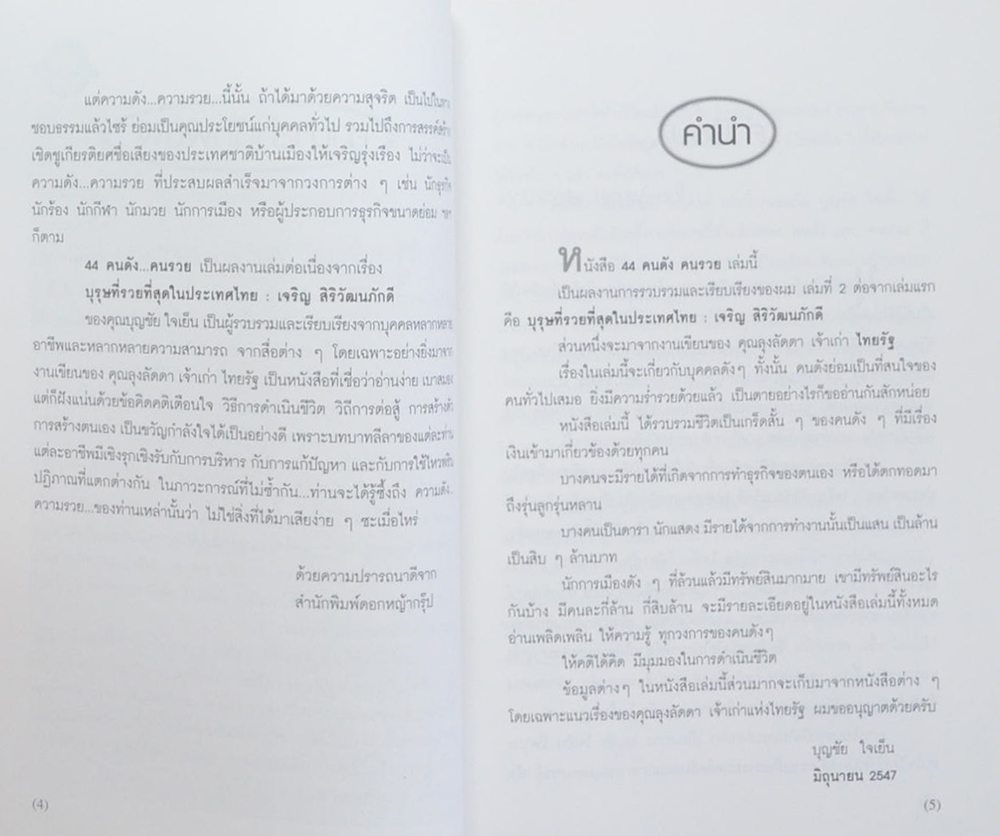 แต่ความดัง...ความรวย...นี้นั้น ถ้าได้มาด้วยความสุจริต เป็นไปใน
ชอบธรรมแล้วไซร้ ย่อมเป็นคุณประโยชน์แก่บุคคลทั่วไป รวมไปถึงการสรรค์สร้าง
เชิดชูเกียรติยศชื่อเสียงของประเทศชาติบ้านเมืองให้เจริญรุ่งเรือง ไม่ว่าจะเป็น
ความดัง...ความรวย ที่ประสบผลสำเร็จมาจากวงการต่าง ๆ เช่น นักธุรกิจ
นักร้อง นักกีฬา นักมวย นักการเมือง หรือผู้ประกอบการธุรกิจขนาดย่อม
ก็ตาม
44 คนดัง...คนรวย เป็นผลงานเล่มต่อเนื่องจากเรื่อง
บุรุษที่รวยที่สุดในประเทศไทย : เจริญ สิริวัฒนภักดี
ของคุณบุญชัย ใจเย็น เป็นผู้รวบรวมและเรียบเรียงจากบุคคลหลากหลาย
อาชีพและหลากหลายความสามารถ จากสื่อต่าง ๆ โดยเฉพาะอย่างยิ่งมาจาก
งานเขียนของ คุณลุงลัดดา เจ้าเก่า ไทยรัฐ เป็นหนังสือที่เชื่อว่าอ่านง่าย เบาสมอง
แต่ก็ฝังแน่นด้วยข้อคิดคติเตือนใจ วิธีการดำเนินชีวิต วิถีการต่อสู้ การสร้างตัว
การสร้างตนเอง เป็นขวัญกำลังใจได้เป็นอย่างดี เพราะบทบาทลีลาของแต่ละท่าน
แต่ละอาชีพมีเชิงรุกเชิงรับกับการบริหาร กับการแก้ปัญหา และกับการใช้ไหวพริบ
ปฏิภาณที่แตกต่างกัน ในภาวะการณ์ที่ไม่ซ้ำกัน...ท่านจะได้รู้ซึ้งถึง ความดัง..
ความรวย...ของท่านเหล่านั้นว่า ไม่ใช่สิ่งที่ได้มาเสียง่าย ๆ ซะเมื่อไหร่
ด้วยความปรารถนาดีจาก
สำนักพิมพ์ดอกหญ้ากรุ๊ป
(4)
คำนำ
หนังสือ 44 คนดัง คนรวย เล่มนี้
เป็นผลงานการรวบรวมและเรียบเรียงของผม เล่มที่ 2 ต่อจากเล่มแรก
คือ บุรุษที่รวยที่สุดในประเทศไทย : เจริญ สิริวัฒนภักดี
ส่วนหนึ่งจะมาจากงานเขียนของ คุณลุงลัดดา เจ้าเก่า ไทยรัฐ
เรื่องในเล่มนี้จะเกี่ยวกับบุคคลดังๆ ทั้งนั้น คนดังย่อมเป็นที่สนใจของ
คนทั่วไปเสมอ ยิ่งมีความร่ำรวยด้วยแล้ว เป็นตายอย่างไรก็ขออ่านกันสักหน่อย
หนังสือเล่มนี้ ได้รวบรวมชีวิตเป็นเกร็ดสั้น ๆ ของคนดัง ๆ ที่มีเรื่อง
เงินเข้ามาเกี่ยวข้องด้วยทุกคน
บางคนจะมีรายได้ที่เกิดจากการทำธุรกิจของตนเอง หรือได้ตกทอดมา
ถึงรุ่นลูกรุ่นหลาน
บางคนเป็นดารา นักแสดง มีรายได้จากการทำงานนั้นเป็นแสน เป็นล้าน
เป็นสิบ ๆ ล้านบาท
นักการเมืองดัง ๆ ที่ล้วนแล้วมีทรัพย์สินมากมาย เขามีทรัพย์สินอะไร
กันบ้าง มีคนละกี่ล้าน กี่สิบล้าน จะมีรายละเอียดอยู่ในหนังสือเล่มนี้ทั้งหมด
อ่านเพลิดเพลิน ให้ความรู้ ทุกวงการของคนดังๆ
ให้คติได้คิด มีมุมมองในการดำเนินชีวิต
ข้อมูลต่างๆ ในหนังสือเล่มนี้ส่วนมากจะเก็บมาจากหนังสือต่าง ๆ
โดยเฉพาะแนวเรื่องของคุณลุงลัดดา เจ้าเก่าแห่งไทยรัฐ ผมขออนุญาตด้วยครับ
บุญชัย ใจเย็น
มิถุนายน 2547
(5)